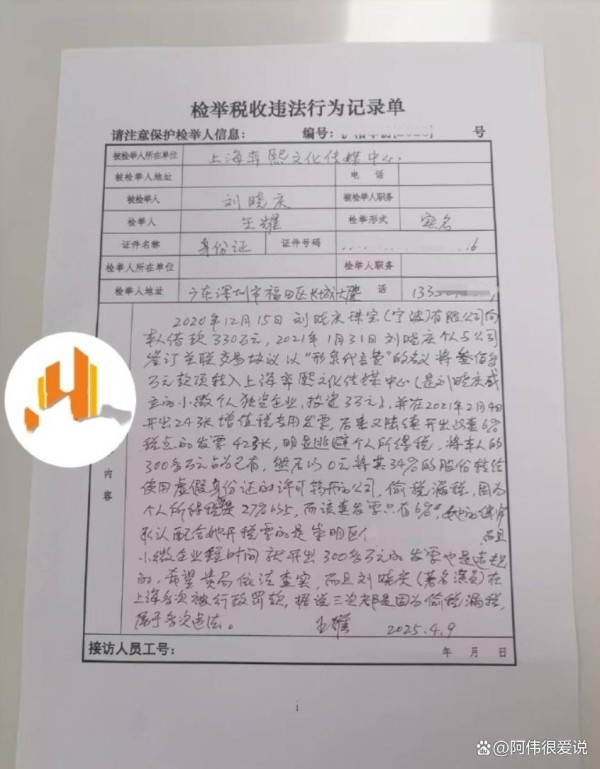 检举税收违法行为记录单
请注意保护检举人信息: 编号: 号
被检举人所在单位 上海弈熙文化传媒中心.
被检举人地址 电 话
被检举人 刘晓庆 被检举人职务
检举人 王耀 检举形式 实名
证件名称 身份证 证件号码 16
检举人所在单位 检举人职务
检举人地址 广东深圳市福田区长城大厦 133
内容
2020年12月15日刘晓庆珠宝(宁波)有限公司向
本人借款330万元, 2021年1月31日刘晓庆个人与公司
签订关联交易协议以"形象代言费"的名义将叁佰多
万元款项转入上海弈熙文化传媒中心(是刘晓庆成
立的小微个人独资企业, 按定3万元), 并在2021年2月4日
开出243张增值税专用发票, 后来又陆续开出以查6%
税点的发票423张, 明显逃避个人所得税, 将本人的
300多万元占为己有, 然后以0元将其34%的股份转给
使用虚假身份证的许可 的公司, 偷税漏税, 因为
个人所得税 , 而该类发票只有6%,
承认配合她开税票的是崇明区 而且
小微企业短时间就开出300多万元的发票也是违规
的, 希望贵局依法查实, 而且刘晓庆(著名演员)在
上海多次被行政罚款, 据说三次都是因为偷税漏税,
属于多次违法. 王耀 2025.4.9
接访人员工号: 年 月 日
1
@阿伟很爱说